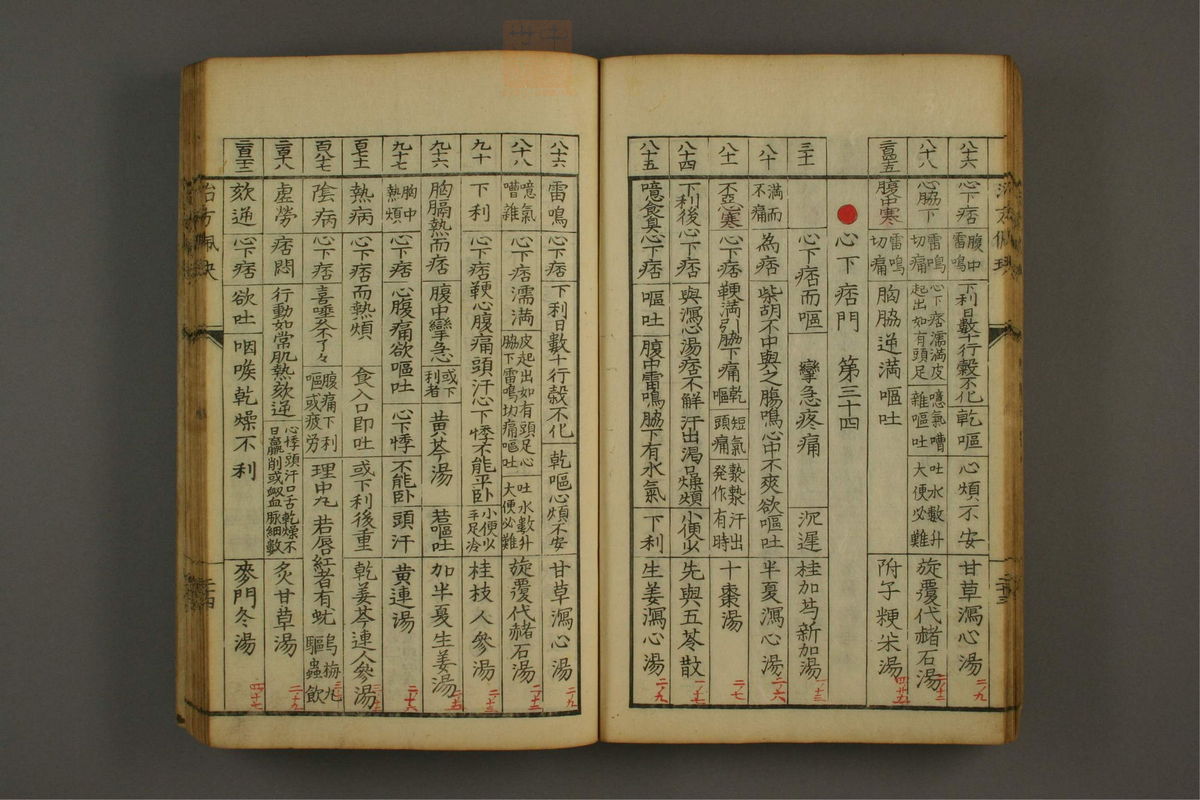 八十六 心下痞 腹中雷鳴 下利日數十行穀不化 乾嘔 心煩不安 甘草瀉心湯 二ノ九
八十八 心下痞 脇下雷鳴切痛 心下痞濡滿皮起出如有頭足 噫氣嘈雜嘔吐 吐水數升大便必難 旋覆代赭石湯
腹中寒 雷鳴切痛 胸脇逆滿嘔吐 附子粳米湯
心下痞門 第三十四
三十一 心下痞而嘔 攣急疼痛 沉遲 桂加芍新加湯
八十 滿而不痛 為痞 柴胡不中與之腸鳴心中不爽欲嘔吐 半夏瀉心湯 二ノ六
八十一 不惡寒 心下痞 鞕滿引脇下痛 乾嘔 短氣頭痛 漐漐汗出發作有時 十棗湯 二ノ七
八十四 下利後 心下痞 與瀉心湯痞不解 汗出渴燥煩 小便少 先與五苓散 一ノ七
八十五 噫食臭 心下痞 嘔吐 腹中雷鳴脇下有水氣 下利 生姜瀉心湯 二ノ九
八十六 雷鳴 心下痞 下利日數十行穀不化 乾嘔心煩不安 甘草瀉心湯 二ノ九
八十八 噫氣嘈雜 心下痞濡滿 皮起出如有頭足心脇下雷鳴切痛嘔吐 吐水數升大便必難 旋覆代赭石湯
九十 下利 心下痞鞕心腹痛頭汗心下悸不能平卧 小便少手足冷 桂枝人參湯
九十六 胸膈熱而痞 腹中攣急 或下利者 黄芩湯 若嘔吐 加半夏生姜湯
九十七 胸中熱煩 心下痞 心腹痛欲嘔吐 心下悸 不能卧 頭汗 黄連湯
熱病 心下痞而熱煩 食入口即吐 或下利後重 乾姜芩連人參湯
陰病 心下痞 喜唾久不了々 腹痛下利嘔或疲労 理中丸 若唇紅者有蚘 烏梅丸驅蟲飲
虚勞 痞悶 行動如常肌熱欬逆 心悸頭汗口舌乾燥不日羸削或衂血脉細數 炙甘草湯 二ノ十九
欬逆 心下痞 欲吐 咽喉乾燥不利 麥門冬湯 四ノ十七